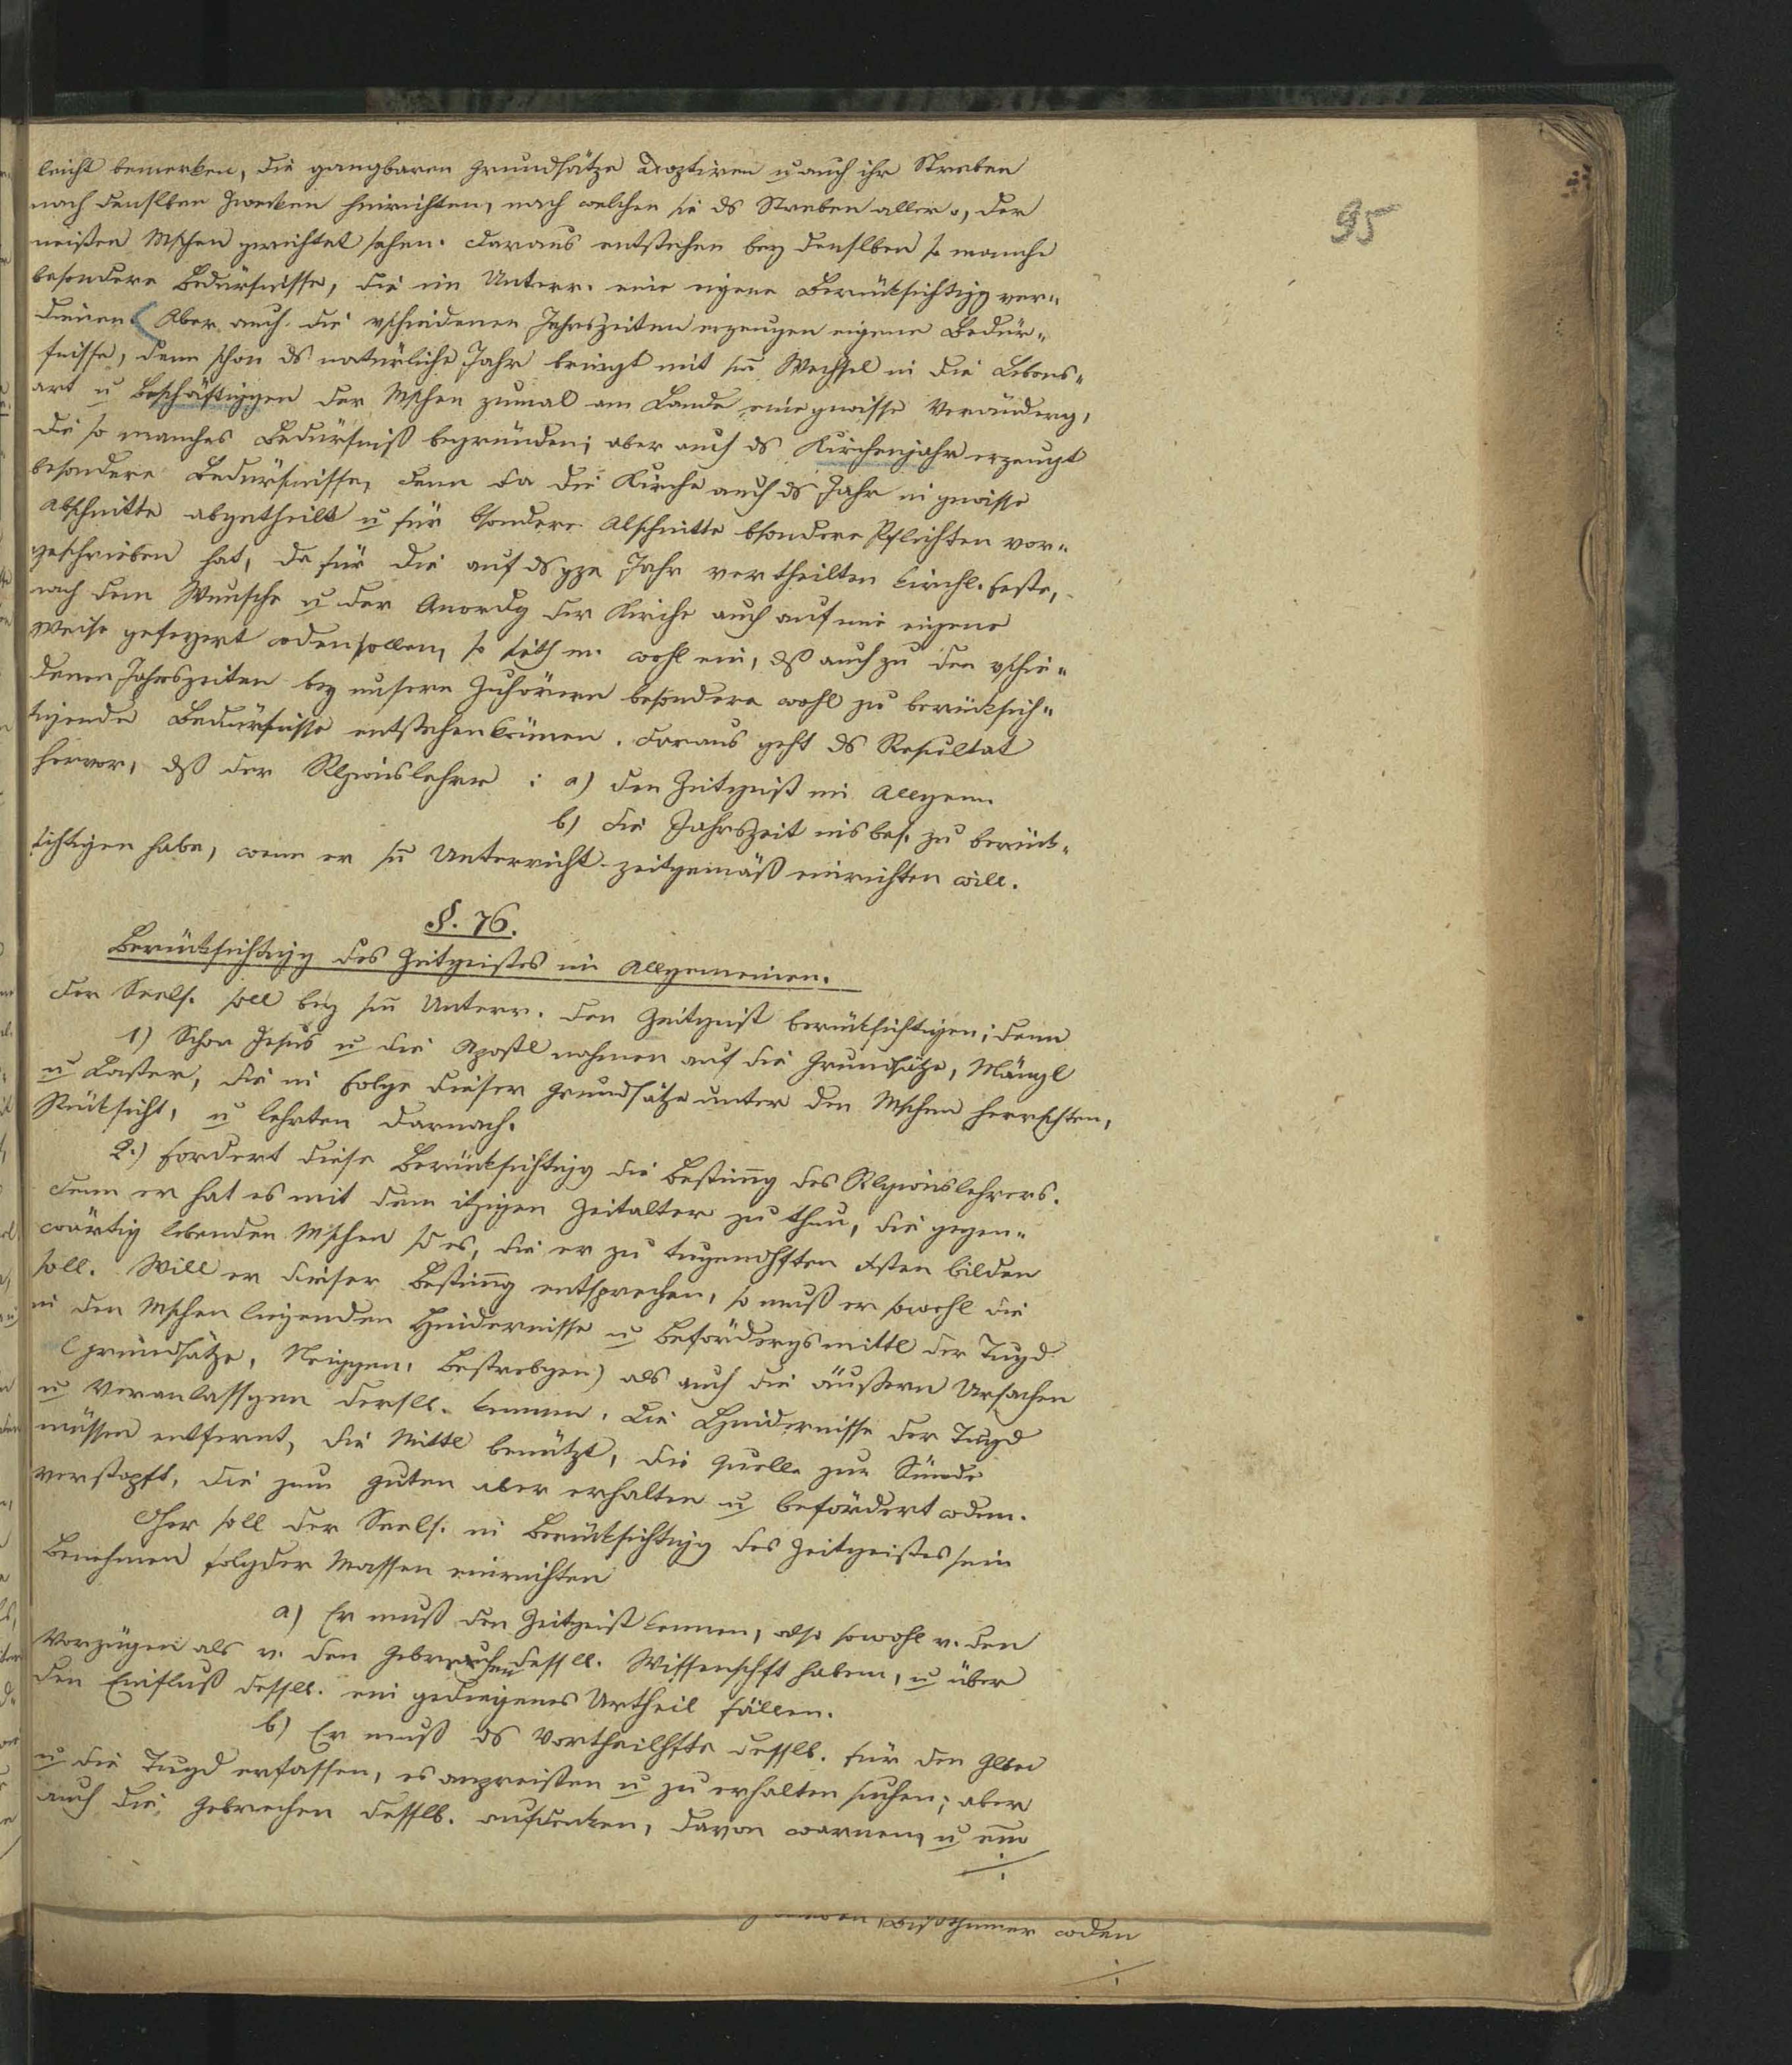 95
leicht bemerken, die gangbaren Grundsätze adoptiren u auch ihr Streben
nach denslben Zwecken hinrichten, nach welchen sie ds Streben aller o, der
meisten Mschen gerichtet sehen. Daraus entstehen bey denslben so manche
besondere Bedürfnisse, die im Unterr. eine eigene Berüksichtigg ver„
dienen. Aber auch die vschiedenen Jahrszeiten erzeugen eigene Bedür„
fnisse, denn schon ds natürliche Jahr bringt mit sm Wechsel in die Lebens„
art u Beschäftiggen der Mschen zumal am Lande eine gewisse Veränderg,
die so manches Bedürfniß begründen; aber auch ds Kirchenjahr erzeugt
besondere Bedürfnisse, denn da die Kirche auch ds Jahr in gewisse
Abschnitte abgetheilt u für bsondere Abschnitte bsondere Pflichten vor„
geschrieben hat, da für die auf ds gze Jahr vertheilten kirchl. Feste,
nach dem Wunsche u der Anordg der Kirche auch auf eine eigene
Weise gefeyert wden sollen, so sieht m. wohl ein, dß auch zu den vschie„
denen Jahrszeiten bey unsern Zuhörern besondere wohl zu berüksich„
tigende Bedürfnisse entstehen können. Daraus geht ds Resultat
hervor, dß der Rlgionslehrer : a) den Zeitgeist im Allgem.
b) die Jahrszeit insbes. zu berük„
sichtigen habe, wenn er sn Unterricht zeitgemäß einrichten will.
§. 76.
Berüksichtigg des Zeitgeistes im Allgemeinen.
Der Seels. soll bey sm Unterr. den Zeitgeist berüksichtigen; denn
1) Schon Jesus u die Apostl nahmen auf die Grundsätze, Mängl
u Laster, die in Folge dieser Grundsätze unter den Mschen herrschten,
Rüksicht, u lehrten darnach.
2.) Fordert diese Berüksichtigg die Bestimg des Rlgionslehrers.
denn er hat es mit dem itzigen Zeitalter zu thun, die gegen„
wärtig lebenden Mschen sd es, die er zu tugendhften Xsten bilden
soll. Will er dieser Bestimg entsprechen, so muß er sowohl die
in den Mschen liegenden Hindernisse u Beförderungsmittl der Tugd
(Grundsätze, Neiggen, Bestrebgen) als auch die äußern Ursachen
u Veranlassgen dersll. kennen. Die Hindernisse der Tugd
müssen entfernt, die Mittl benützt, die Quelle zur Sünde
verstopft, die zum Guten aber erhalten u befördert wden.
Dher soll der Seels. in Berüksichtigg des Zeitgeistes sein
Benehmen folgder Massen einrichten
a) Er muß den Zeitgeist kennen, also sowohl v. den
Vorzügen als v. den Gebrechen dessll. Wissenschft haben, u über
den Einfluß dessll. ein gediegenes Urtheil fällen.
b) Er muß ds Vortheilhfte desslb. für den Glbn
u die Tugd erfassen, es anpreisen u zu erhalten suchen; aber
auch die Gebrechen desslb. aufdecken, davon warnen, u
wden